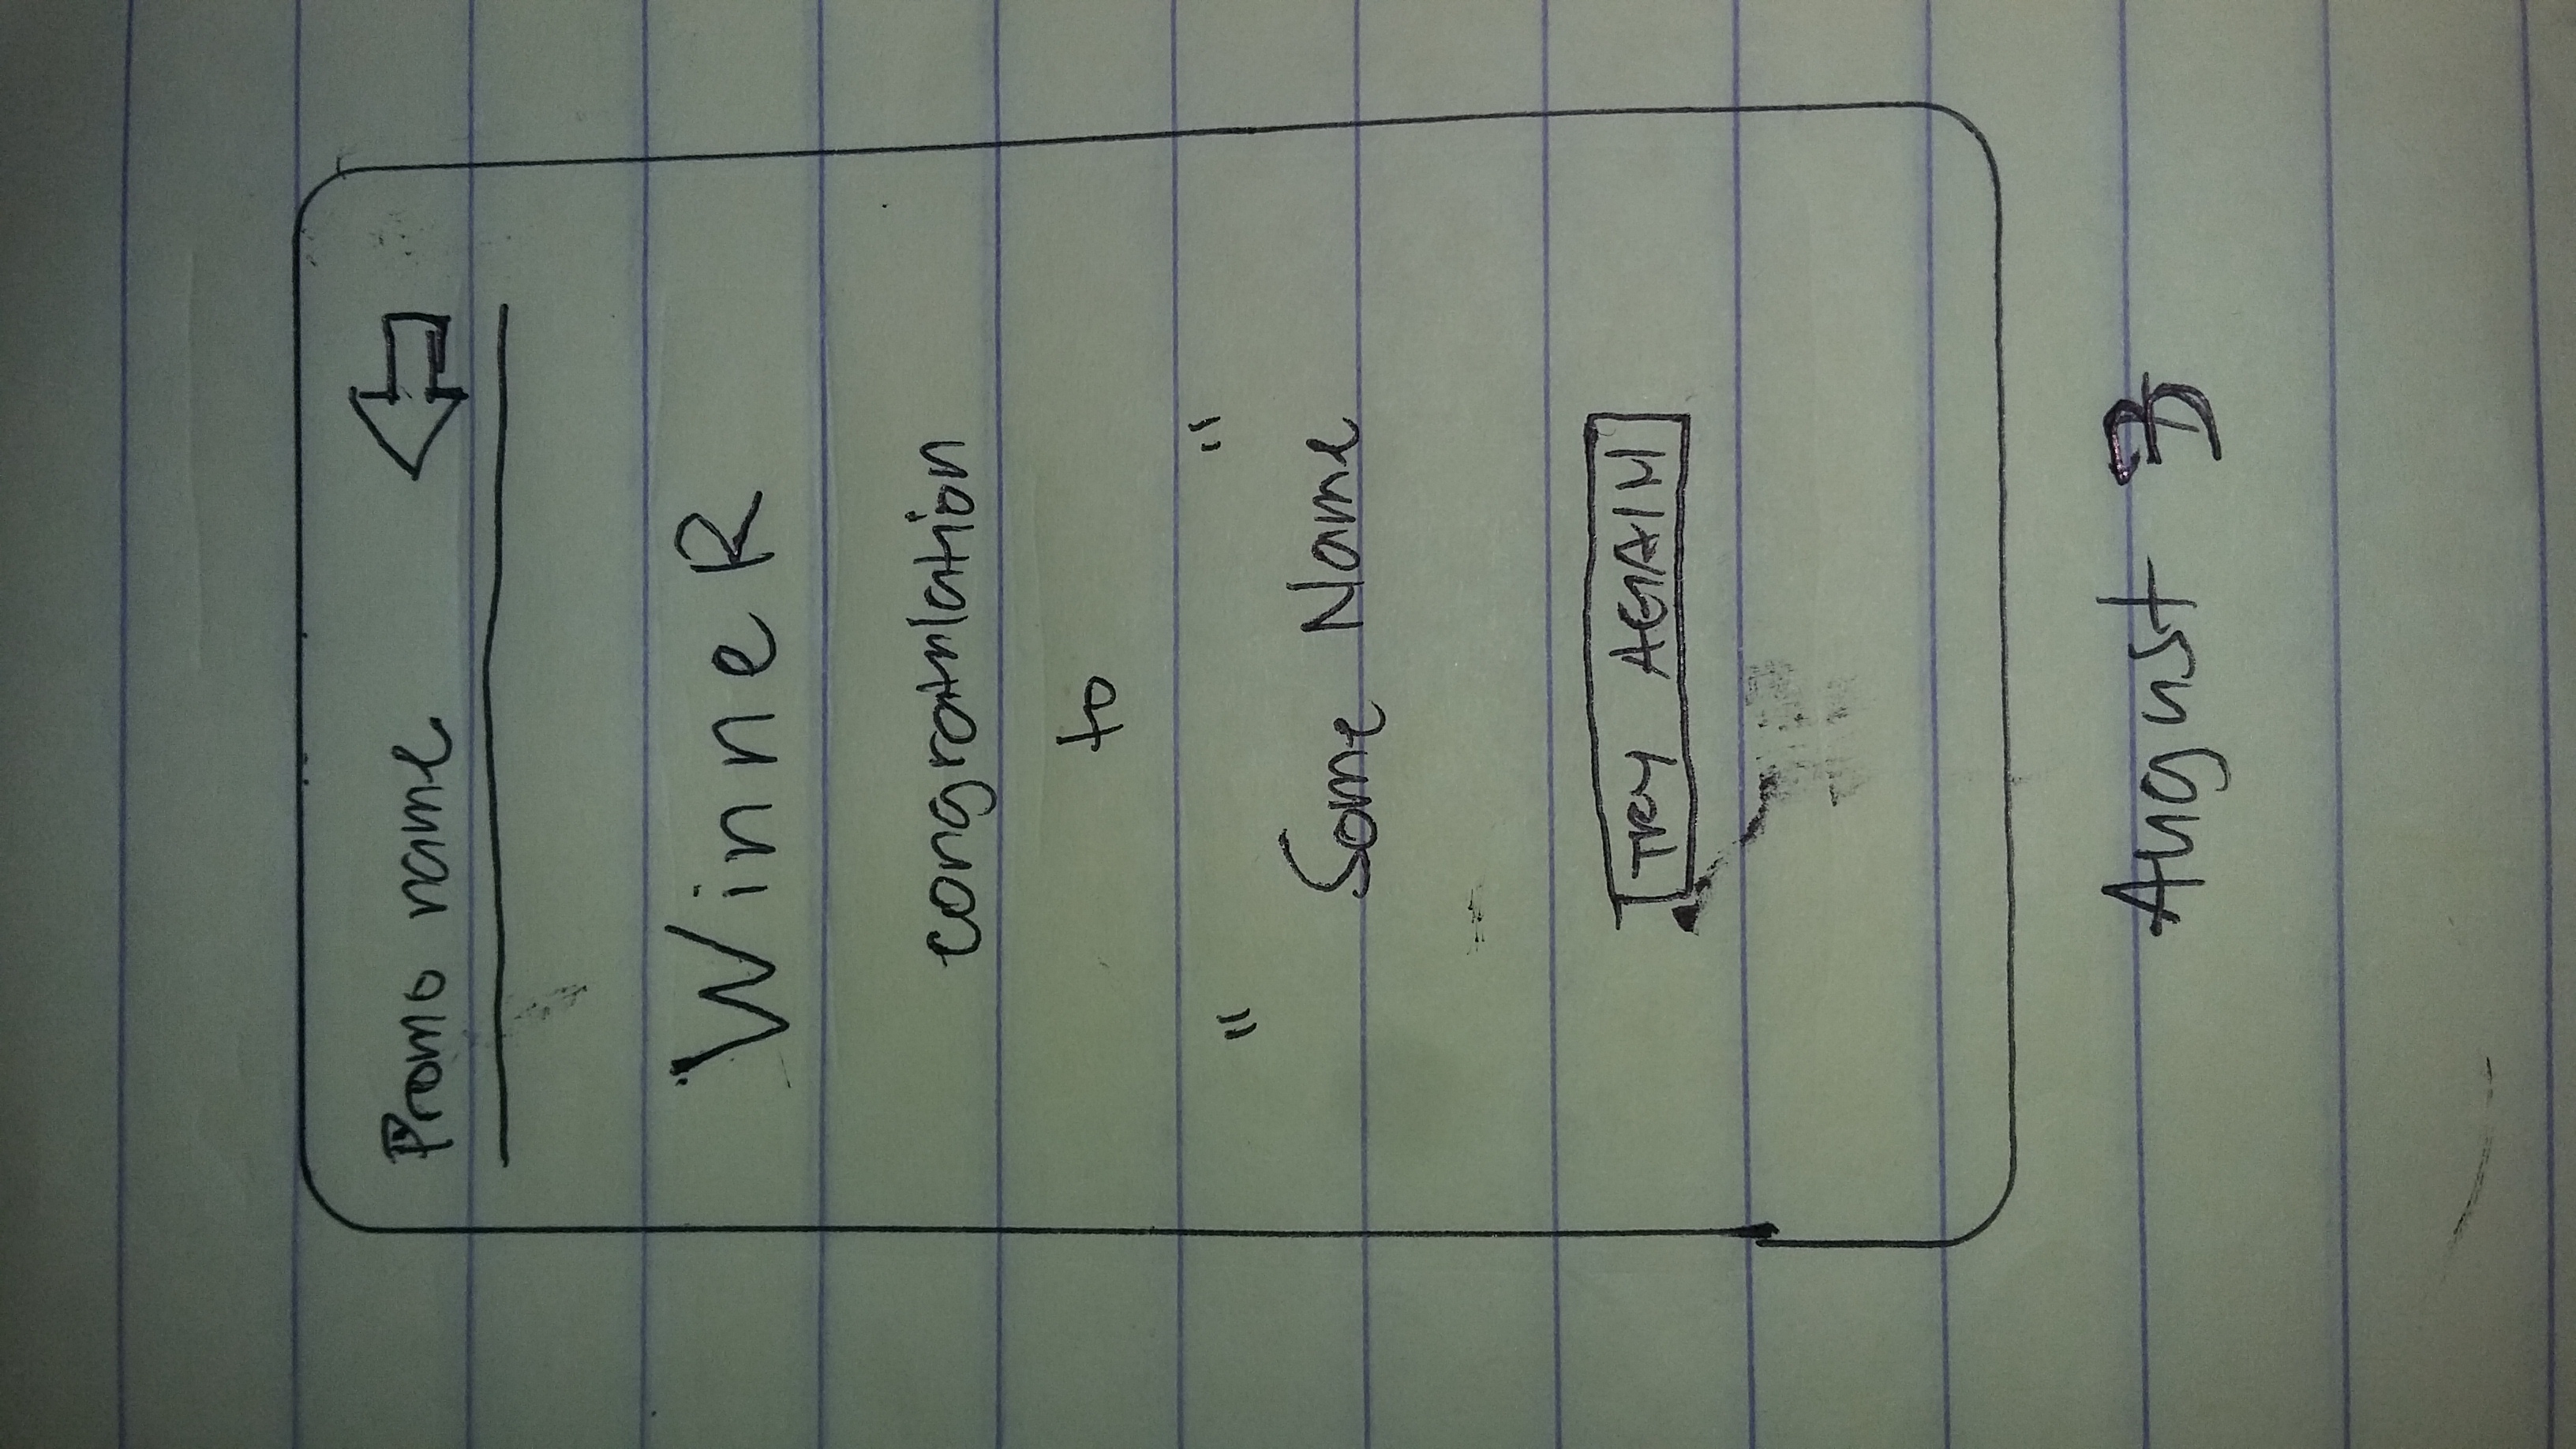 Promo name
WinneR
congratulation
to
" "
Some Name
TRY AGAIN
August